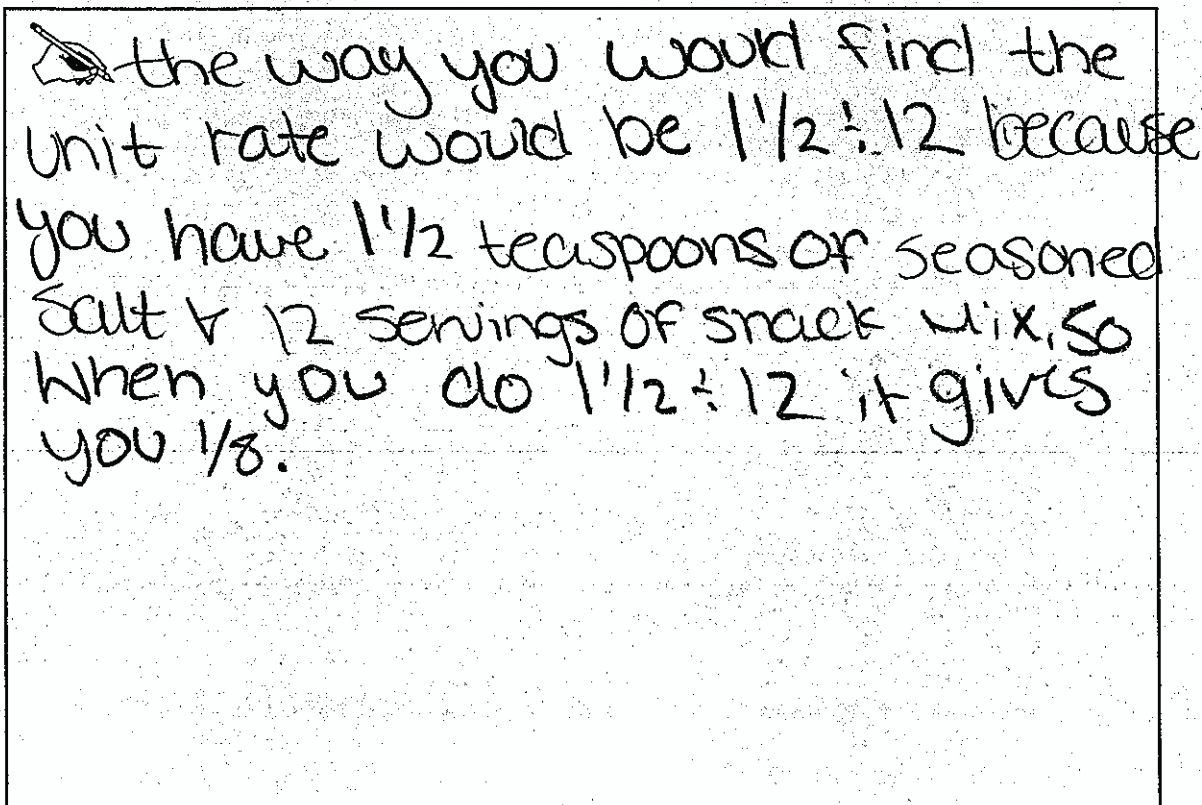 the way you would find the
unit rate would be 1 1/2 ÷ 12 because
you have 1 1/2 teaspoons of seasoned
salt & 12 servings of snack mix, so
when you do 1 1/2 ÷ 12 it gives
you 1/8.